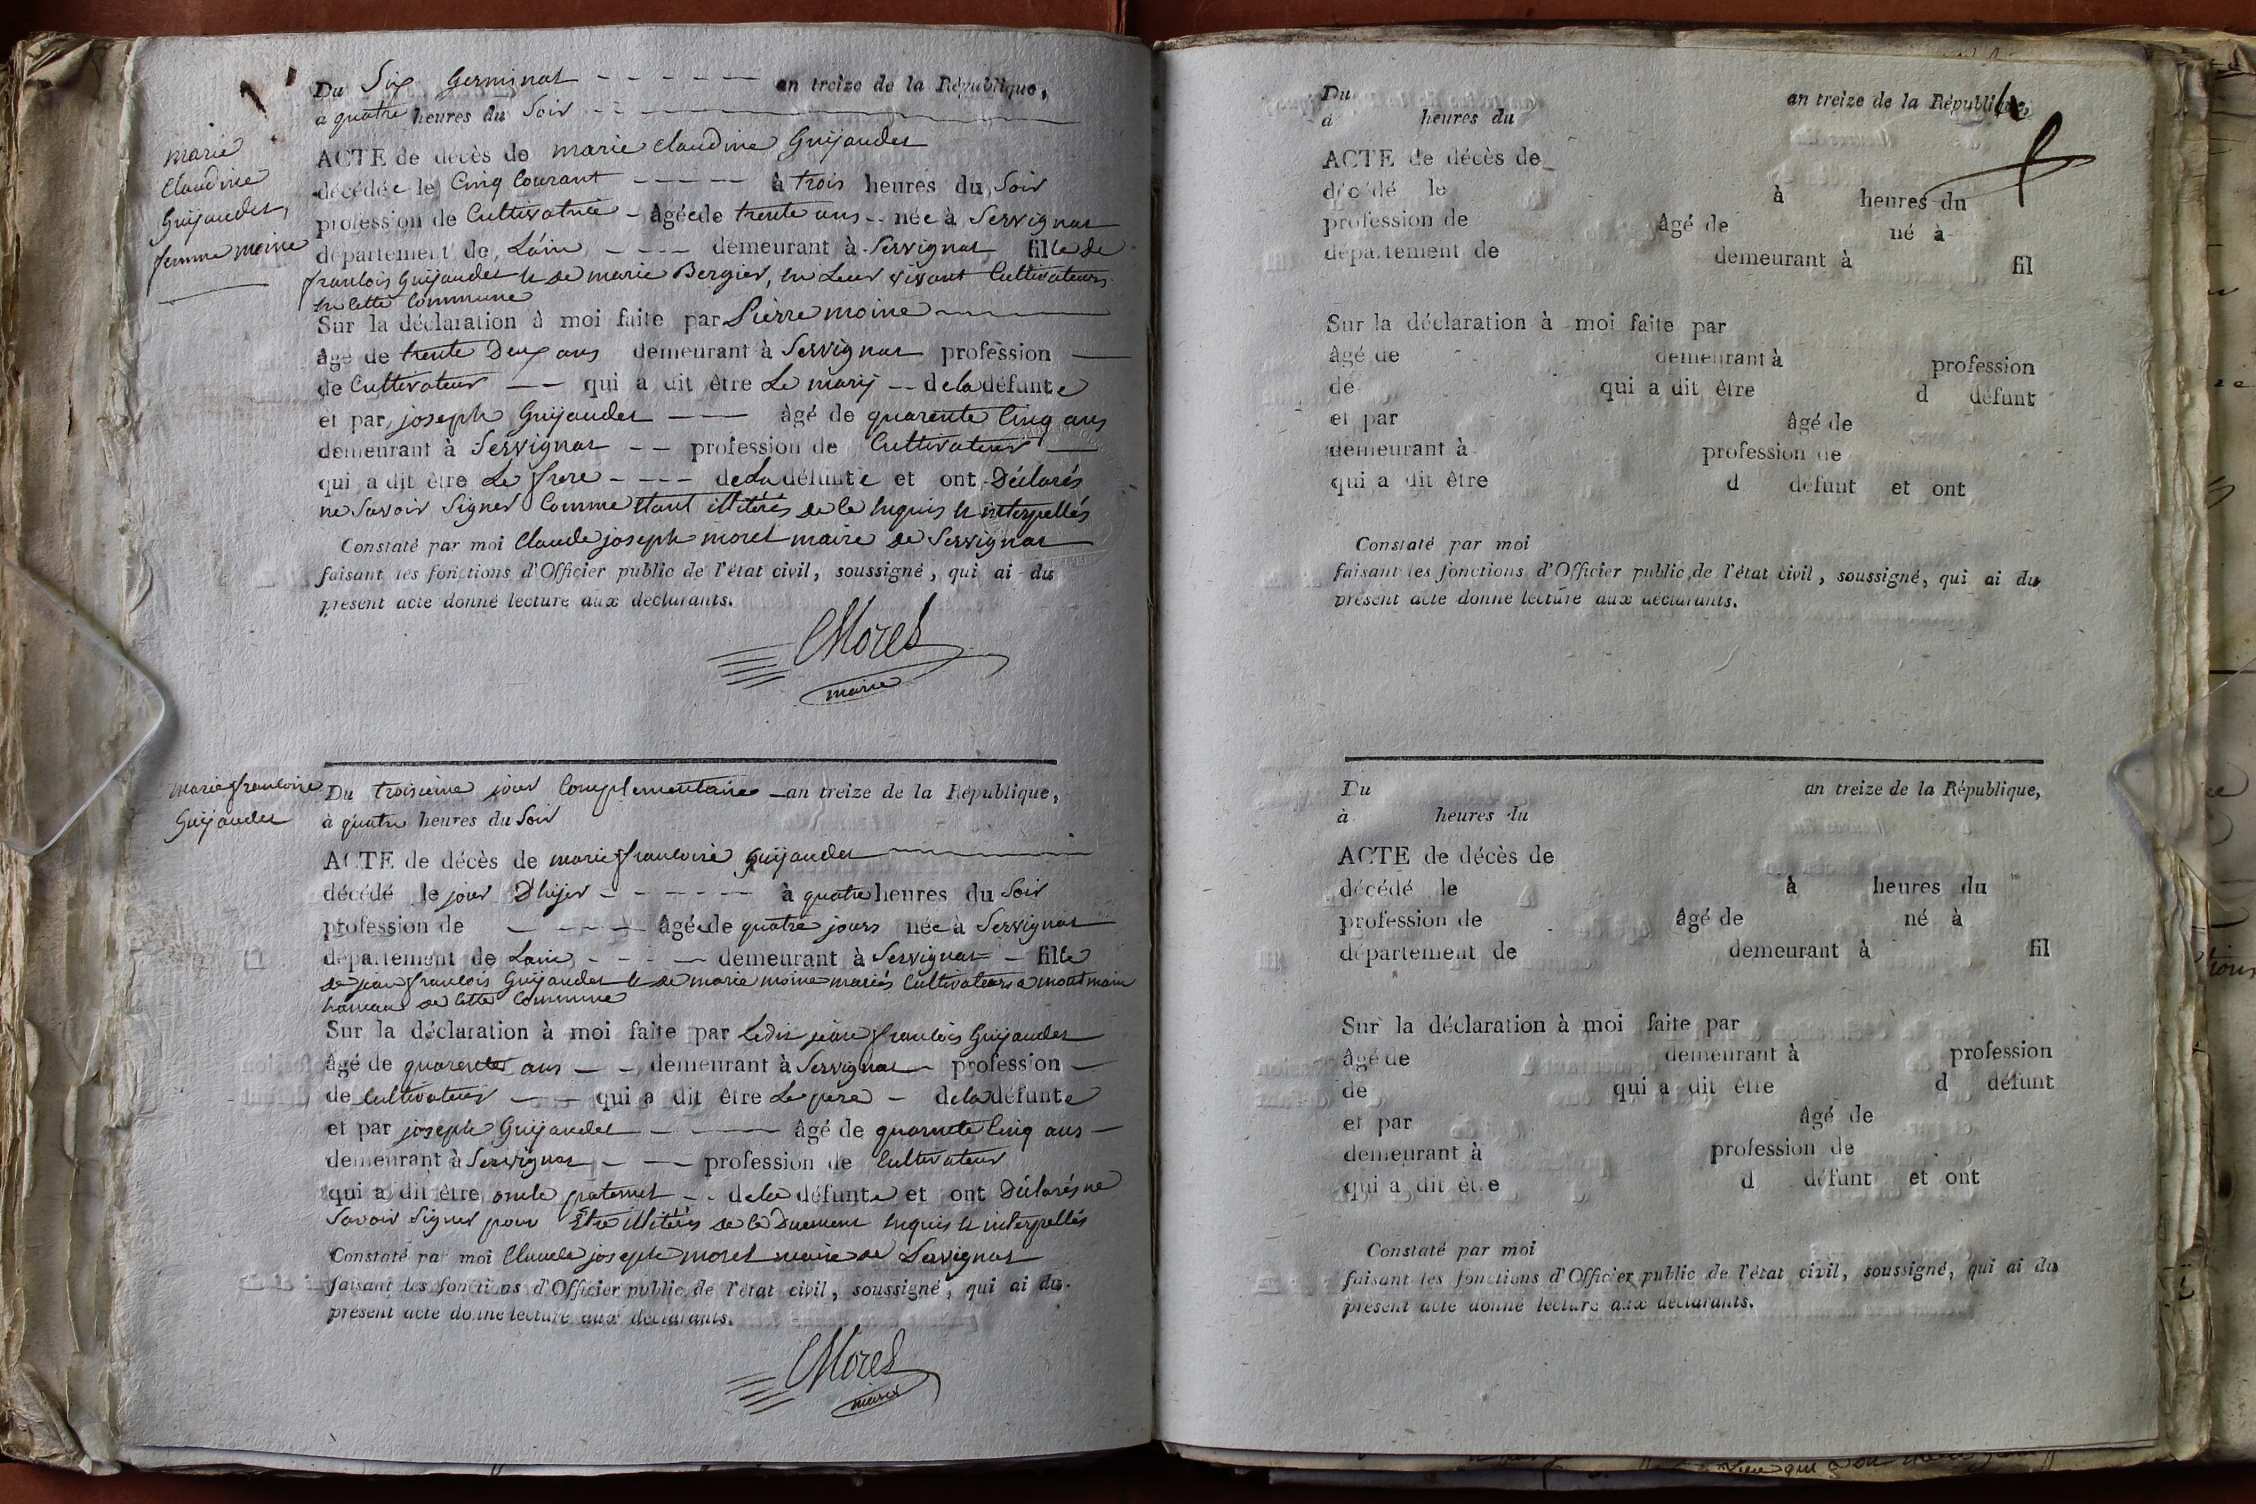 Du Six Germinal - - - - - - an treize de la République,
à quatre heures du Soir - -
marie
Claudine
Guijaudet,
femme moine
ACTE de décès de marie Claudine Guijaudet
décédée le Cinq Courant - - - - - à trois heures du Soir
profession de Cultivatrice - âgée de trente ans - - née à Servignat
département de Lain - - - - demeurant à Servignat fille de
francois Guijaudet et de marie Bergier, en Leur vivant Cultivateurs
en Cette Commune
Sur la déclaration à moi faite par Pierre moine
âgé de trente Deux ans demeurant à Servignat profession
de Cultivateur - - qui a dit être Le marij - - de la défunte
et par joseph Guijaudet - - - âgé de quarente Cinq ans
demeurant à Servignat - - profession de Cultivateur
qui a dit être Le frere - - - - de La défunte et ont Déclarés
ne Savoir Signer Comme Etant illitérés de Ce Enquis et interpellés
Constaté par moi Claude joseph morel maire de Servignat
faisant les fonctions d'Officier public de l'état civil, soussigné, qui ai du
présent acte donné lecture aux déclarants.
CMorel
maire
marie francoise
Guijaudet
Du troisieme jour Complementaire - an treize de la République,
à quatre heures du Soir
ACTE de décès de marie francoise Guijaudet
décédé le jour D'hijer - - - - - - à quatre heures du Soir
profession de - - - - - âgée de quatre jours née à Servignat
département de Lain - - - - demeurant à Servignat - fille
de jean francois Guijaudet et de marie moine mariés Cultivateurs a montmain
hameau de Cette Commune
Sur la déclaration à moi faite par Ledit jean francois Guijaudet
âgé de quarente ans - - demeurant à Servignat profession -
de Cultivateur - - qui a dit être Le pere - de la défunte
et par joseph Guijaudet - - - âgé de quarente Cinq ans -
demeurant à Servignat - - - profession de Cultivateur
qui a dit être oncle paternel - - de la défunte et ont Déclarés ne
Savoir Signer pour Etre illitérés de Ce Duement Enquis et interpellés
Constaté par moi Claude joseph morel maire de Servignat
faisant les fonctions d'Officier public de l'état civil, soussigné, qui ai du
présent acte donné lecture aux déclarants.
CMorel
maire
Du an treize de la République,
à heures du
ACTE de décès de
décédé le à heures du
profession de âgé de né à
département de demeurant à fil
Sur la déclaration à moi faite par
âgé de demeurant à profession
de qui a dit être d défunt
et par âgé de
demeurant à profession de
qui a dit être d défunt et ont
Constaté par moi
faisant les fonctions d'Officier public de l'état civil, soussigné, qui ai du
présent acte donné lecture aux déclarants.
Du an treize de la République,
à heures du
ACTE de décès de
décédé le à heures du
profession de âgé de né à
département de demeurant à fil
Sur la déclaration à moi faite par
âgé de demeurant à profession
de qui a dit être d défunt
et par âgé de
demeurant à profession de
qui a dit être d défunt et ont
Constaté par moi
faisant les fonctions d'Officier public de l'état civil, soussigné, qui ai du
présent acte donné lecture aux déclarants.